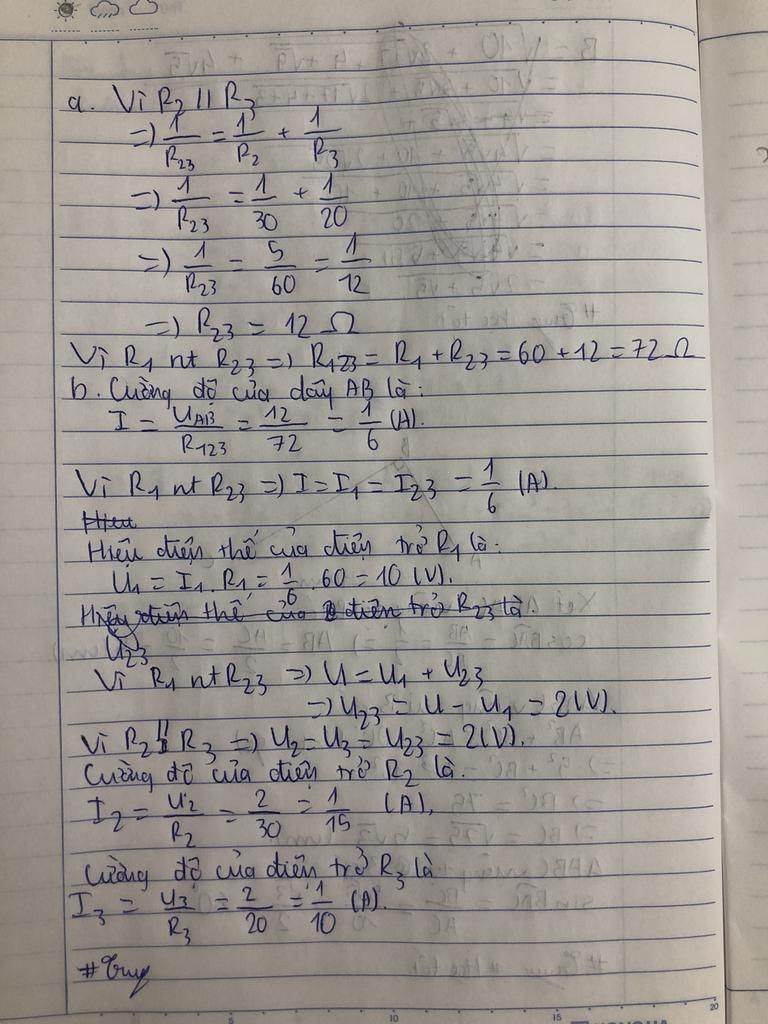 a. Vì R2 // R3
=) 1/R23 = 1/R2 + 1/R3
=) 1/R23 = 1/30 + 1/20
=) 1/R23 = 5/60 = 1/12
=) R23 = 12 Ω
Vì R1 nt R23 =) R123 = R1 + R23 = 60 + 12 = 72 Ω
b. Cường độ của dây AB là:
I = UAB/R123 = 12/72 = 1/6 (A).
Vì R1 nt R23 =) I = I1 = I23 = 1/6 (A).
Hiệu
Hiệu điện thế của điện trở R1 là:
U1 = I1 . R1 = 1/6 . 60 = 10 (V).
Hiệu điện thế của điện trở R23 là.
U23
Vì R1 nt R23 =) U = U1 + U23
=) U23 = U - U1 = 2(V).
Vì R2 // R3 =) U2 = U3 = U23 = 2(V).
Cường độ của điện trở R2 là.
I2 = U2/R2 = 2/30 = 1/15 (A).
Cường độ của điện trở R3 là
I3 = U3/R3 = 2/20 = 1/10 (A).
5 10 15 20